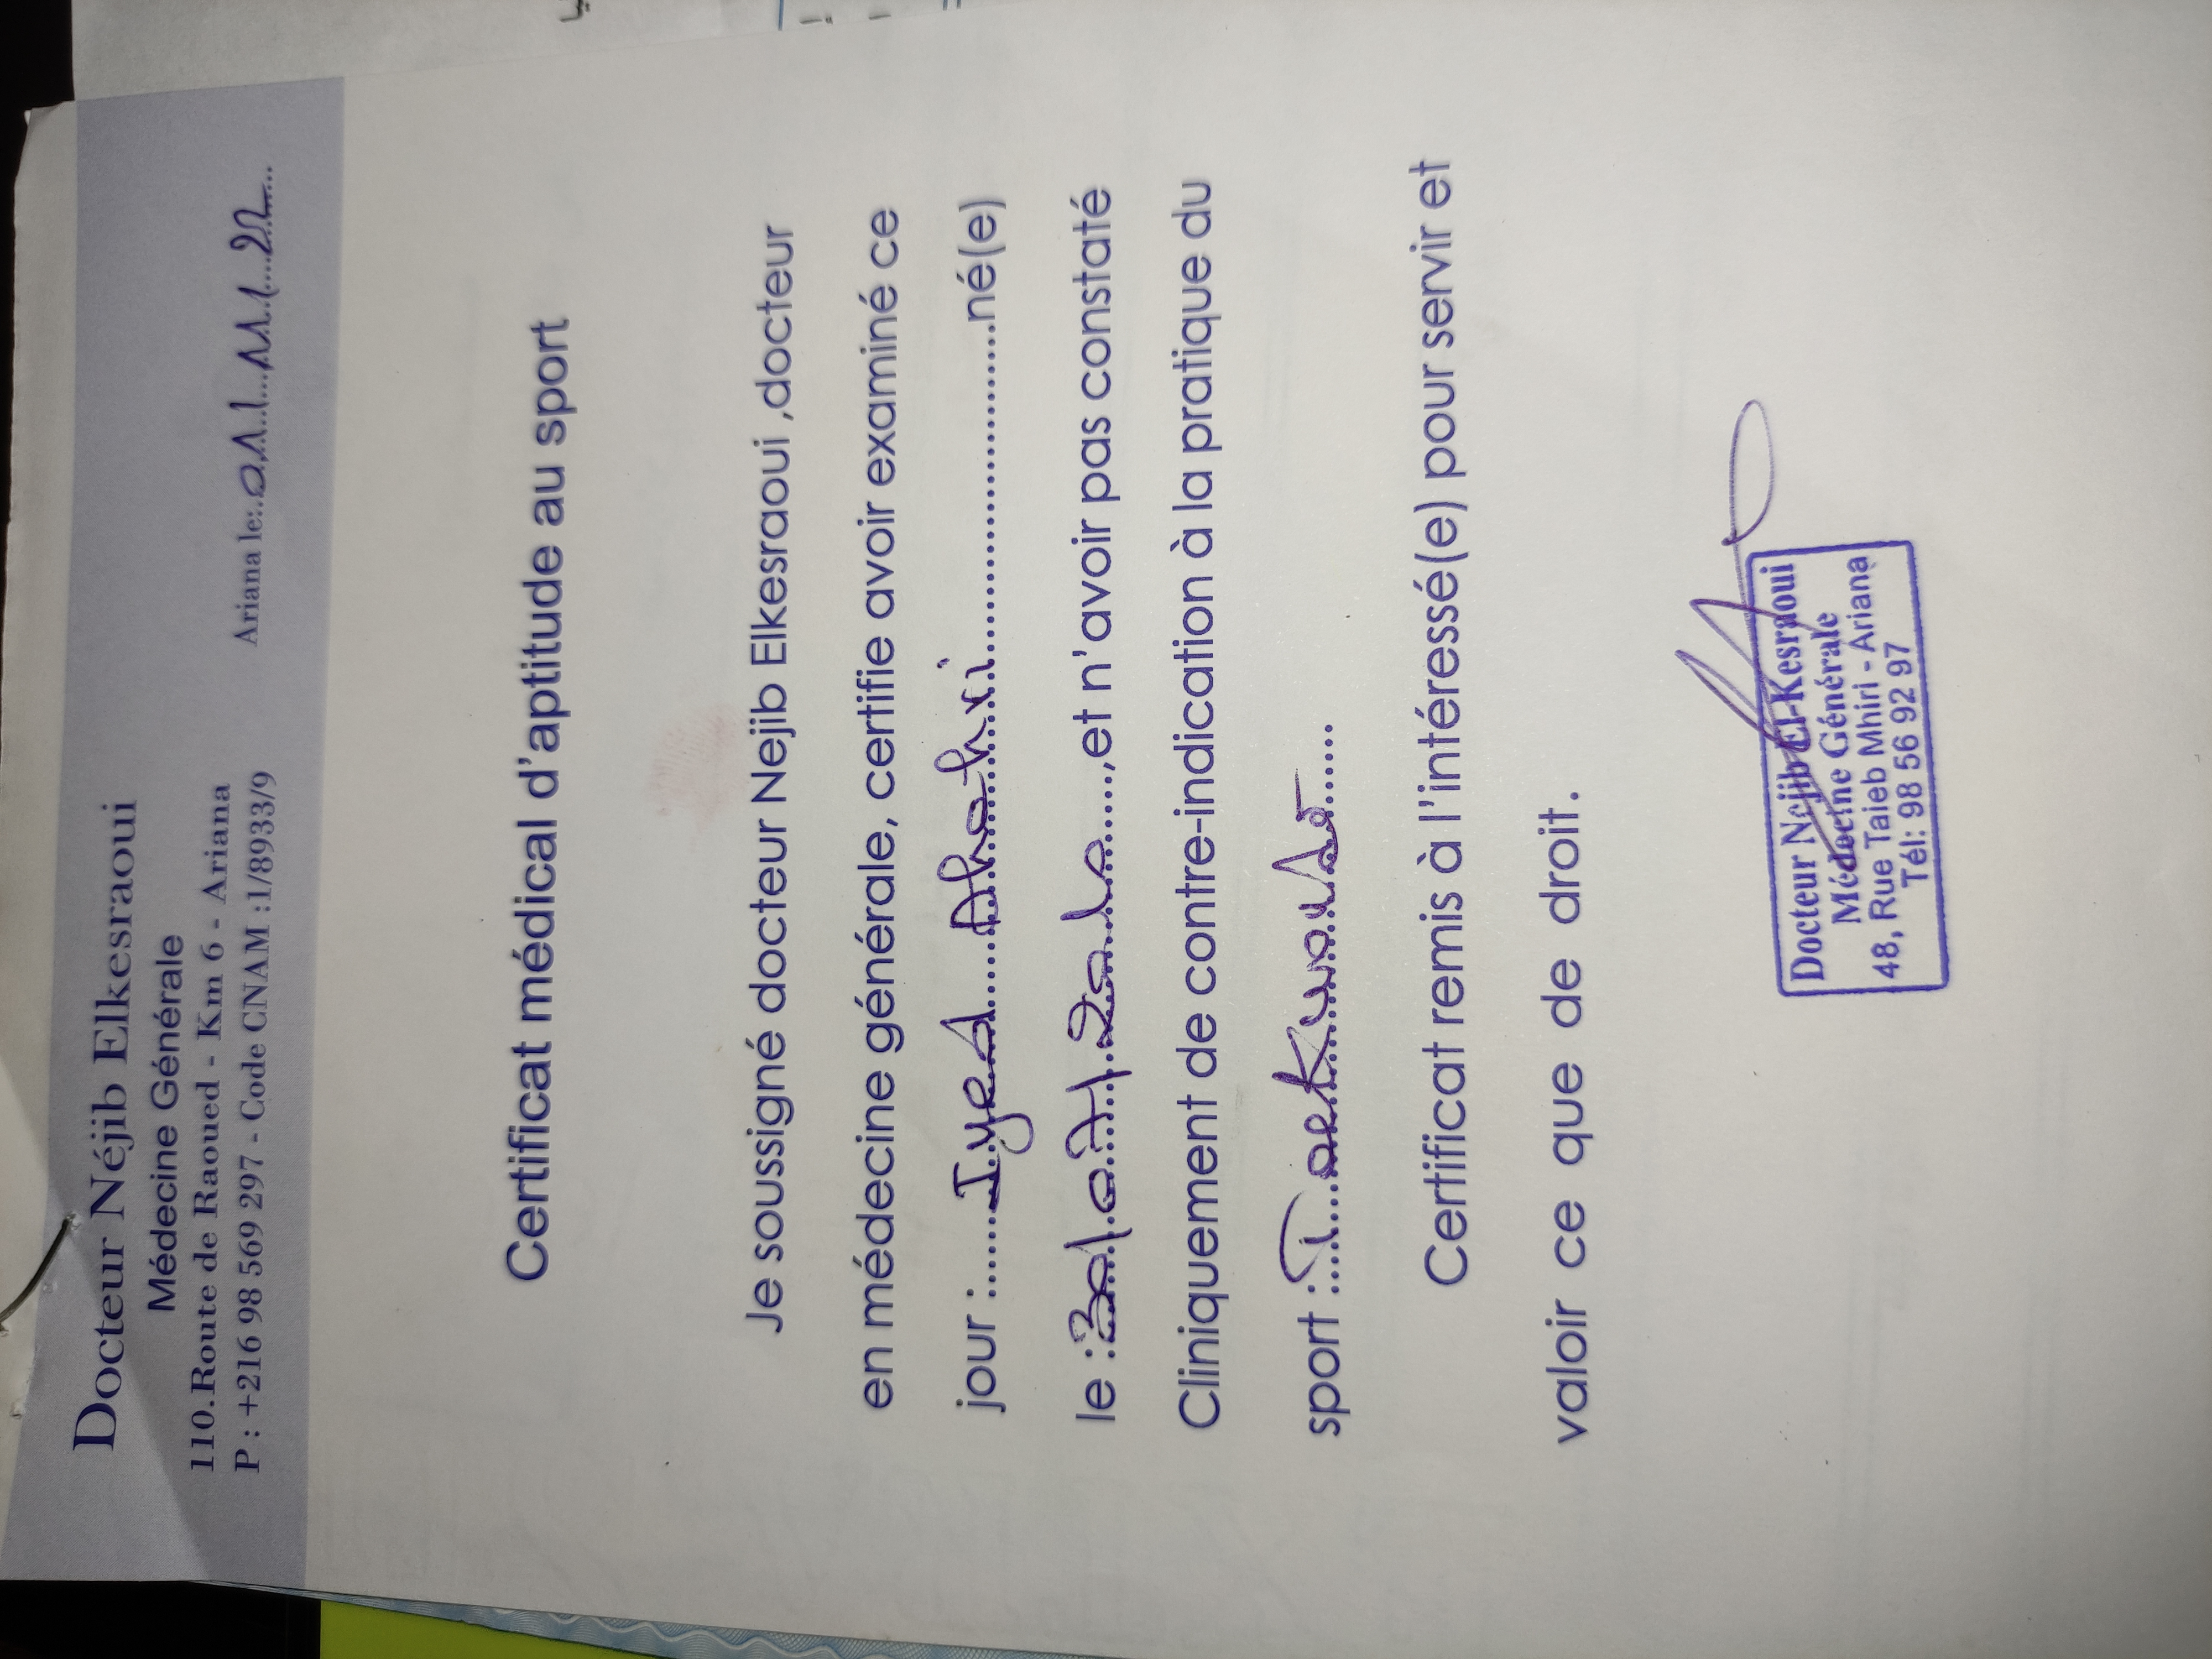 Docteur Néjib Elkesraoui
Médecine Générale
110.Route de Raoued - Km 6 - Ariana
P : +216 98 569 297 - Code CNAM :1/8933/9
Ariana le:..01/11/22...
Certificat médical d'aptitude au sport
Je soussigné docteur Nejib Elkesraoui ,docteur
en médecine générale, certifie avoir examiné ce
jour :.......Iyed.......................né(e)
le :............,et n'avoir pas constaté
Cliniquement de contre-indication à la pratique du
sport :....Taekwondo......
Certificat remis à l'intéressé(e) pour servir et
valoir ce que de droit.
Docteur Nejib El-Kesraoui
Médecine Générale
48, Rue Taieb Mhiri - Ariana
Tél: 98 56 92 97